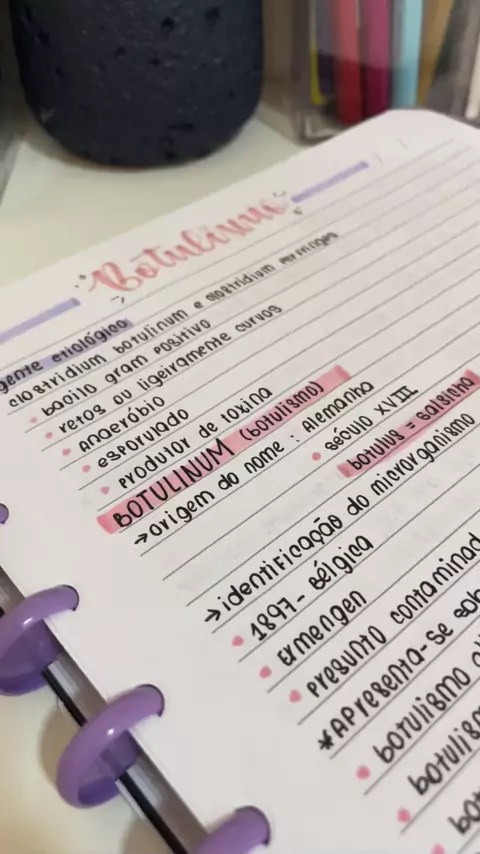 Botulismo
agente etiológico
clostridium botulinum e clostridium
bacilo gram positivo
retos ou ligeiramente curvos
Anaeróbio
esporulado
produtor de toxina
BOTULINUM (botulismo)
→origem do nome: Alemanha
século XVIII
botulus = salsicha
→identificação do microrganismo
1897- Bélgica
Ermengen
presunto contaminad
*Apresenta-se sob
botulismo
botulism
bo